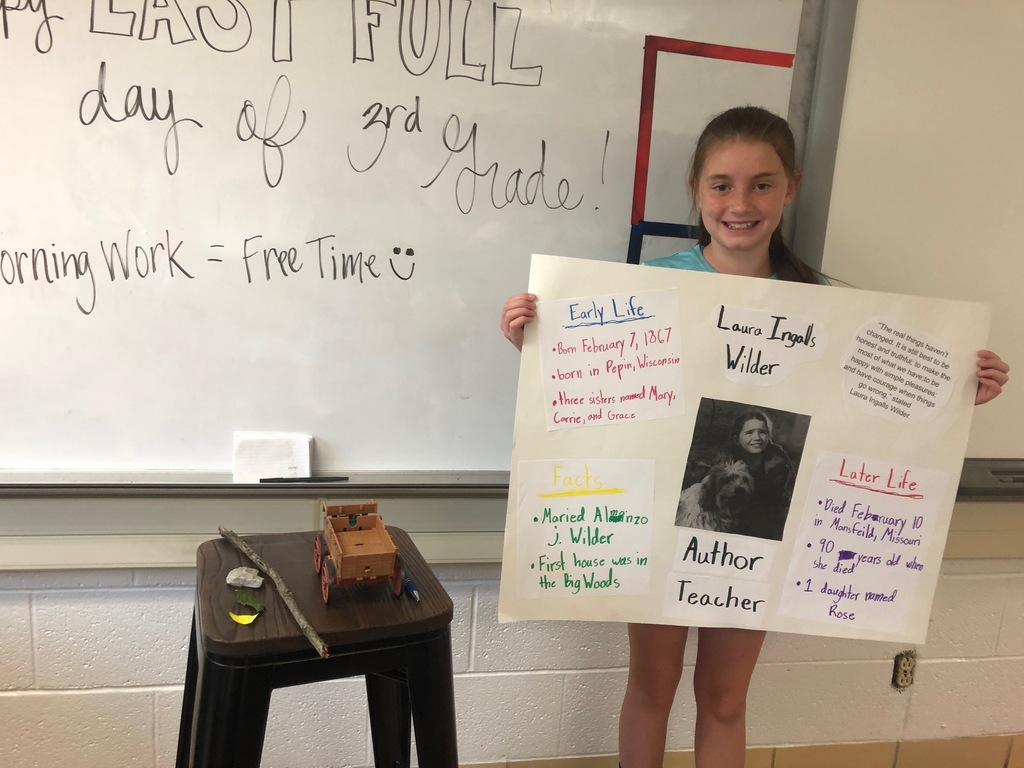 py LAST FULL
day of 3rd
Grade!
orning Work = Free Time
Early Life
• Born February 7, 1867
• born in Pepin, Wisconsin
• three sisters named Mary,
Carrie, and Grace
Laura Ingalls
Wilder
"The real things haven't
changed. It is still best to be
honest and truthful; to make the
most of what we have; to be
happy with simple pleasures;
and have courage when things
go wrong," stated
Laura Ingalls Wilder
Facts
• Maried Almanzo
J. Wilder
• First house was in
the Big Woods
Author
Teacher
Later Life
• Died February 10
in Mansfeild, Missouri
• 90 years old when
she died
• 1 daughter named
Rose